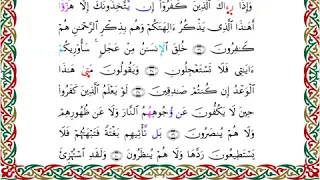 وَإِذَا رَءَاكَ الَّذِينَ كَفَرُوٓا۟ إِن يَتَّخِذُونَكَ إِلَّا هُزُوًا
أَهَٰذَا الَّذِى يَذْكُرُ ءَالِهَتَكُمْ وَهُم بِذِكْرِ الرَّحْمَٰنِ هُمْ
كَٰفِرُونَ ﴿٣٦﴾ خُلِقَ الْإِنسَٰنُ مِنْ عَجَلٍ سَأُو۟رِيكُمْ
ءَايَٰتِى فَلَا تَسْتَعْجِلُونِ ﴿٣٧﴾ وَيَقُولُونَ مَتَىٰ هَٰذَا
الْوَعْدُ إِن كُنتُمْ صَٰدِقِينَ ﴿٣٨﴾ لَوْ يَعْلَمُ الَّذِينَ كَفَرُوا۟
حِينَ لَا يَكُفُّونَ عَن وُجُوهِهِمُ النَّارَ وَلَا عَن ظُهُورِهِمْ
وَلَا هُمْ يُنصَرُونَ ﴿٣٩﴾ بَلْ تَأْتِيهِم بَغْتَةً فَتَبْهَتُهُمْ فَلَا
يَسْتَطِيعُونَ رَدَّهَا وَلَا هُمْ يُنظَرُونَ ﴿٤٠﴾ وَلَقَدِ اسْتُهْزِئَ